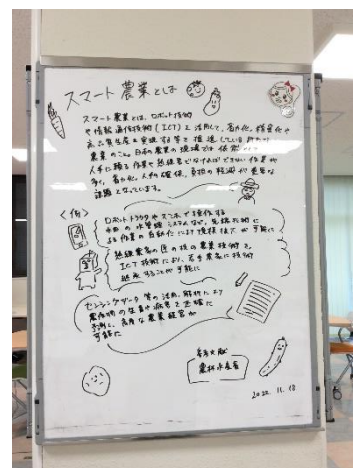 スマート農業とは
スマート農業とは、ロボット技術
や情報通信技術(ICT)を活用して、省力化、精密化や
高品質生産を実現する等を推進している新たな
農業のこと。日本の農業の現場では依然として
人手に頼る作業や熟練者でなければできない作業が
多く、省力化、人手の確保、負担の軽減が重要な
課題となっています。
<例>
ロボットトラクタやスマホで操作する
水田の水管理システムなど、先端技術に
よる作業の自動化により規模拡大が可能に
熟練農家の匠の技の農業技術を、
ICT技術により、若手農家に技術
継承することが可能に
センシングデータ等の活用、解析により
農作物の生育や病害を正確に
予測し、高度な農業経営が
可能に
参考文献
農林水産省
2022.11.18